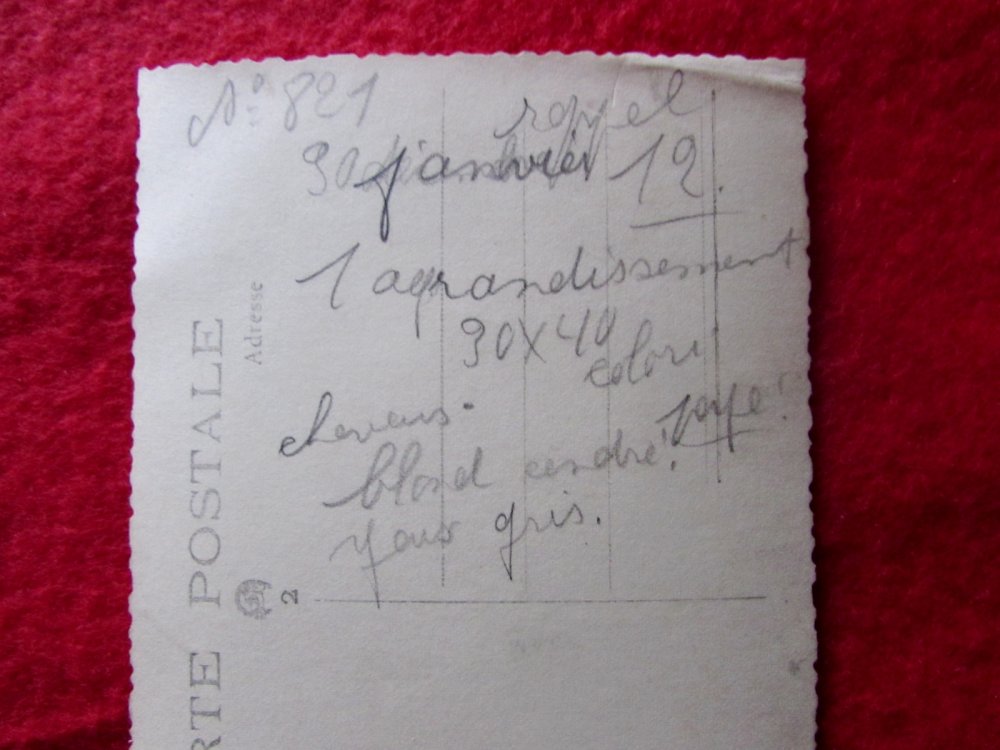 N° 821
rappel
30 janvier 12.
1 agrandissement
30X40
colori
cheveus-
payé!
blond cendré!
yeux gris.
Adresse
RTE POSTALE
2